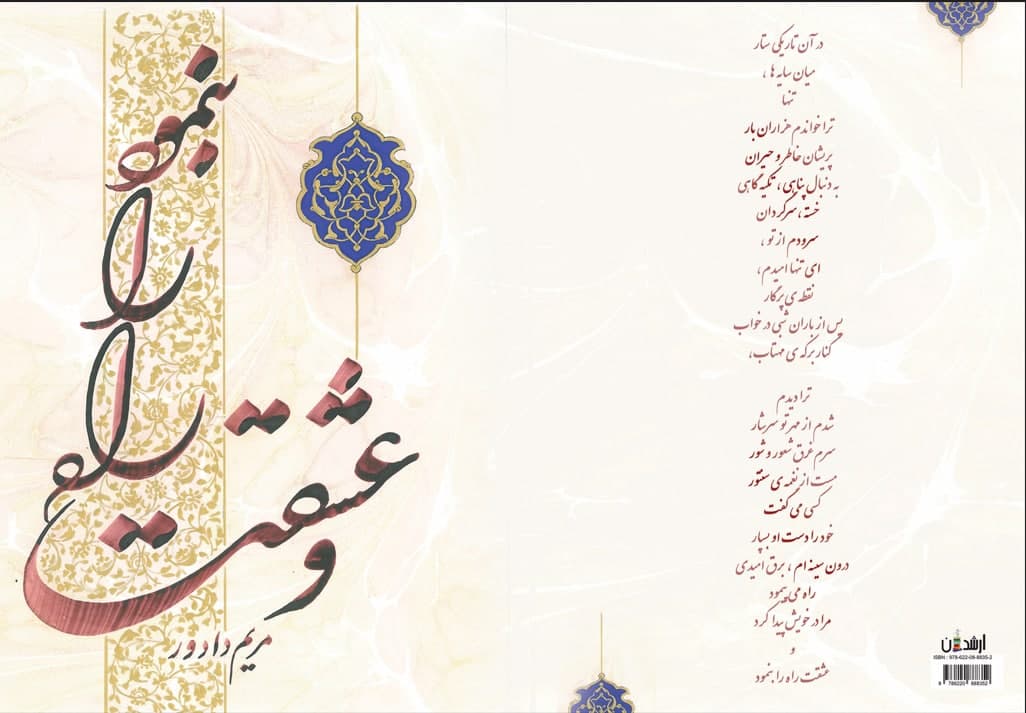 و عشقت راه را بنمود
مریم دادور
در آن تاریکی ستار
میان سایه ها ،
تنها
ترا خواندم هزاران بار
پریشان خاطر و حیران
به دنبال پناهی ، تکیه گاهی
خسته ، سرگردان
سرودم از تو ،
ای تنها امیدم،
نقطه ی پرگار
پس از باران شبی در خواب
کنار برکه ی مهتاب،
ترا دیدم
شدم از مهر تو سرشار
سرم غرق شعور و شور
مست از نغمه ی سنتور
کسی می گفت
خود را دست او بسپار
درون سینه ام ، برق امیدی
راه می پیمود
مرا در خویش پیدا کرد
و
عشقت راه را بنمود
ارشدان
ISBN : 978-622-08-8835-2
9 786220 888352